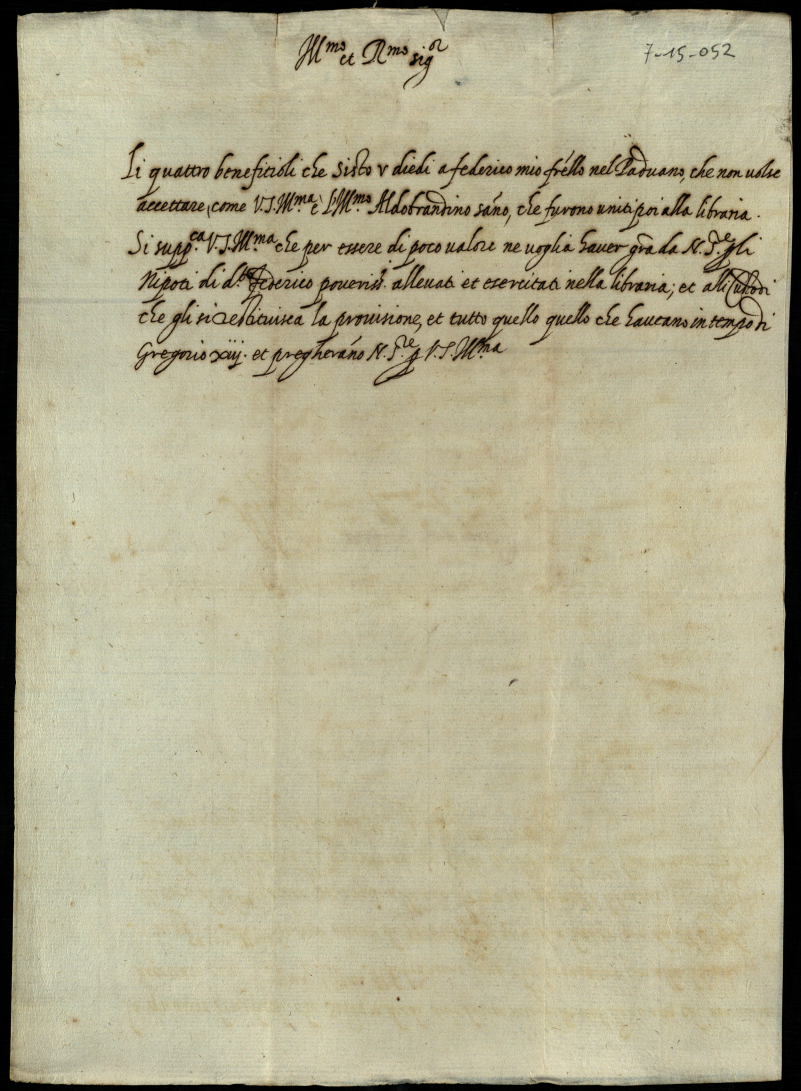 Ill.mo et R.mo sig.or
7-15-052
Li quattro beneficioli che Sisto v diedi a federico mio frello nel Paduano, che non uolse
accettare, come V.S.Ill.ma è l'Ill.mo Aldobrandino sano, che furono uniti poi alla libraria.
Si supp.ca V.S.Ill.ma che per essere di poco ualore ne uoglia hauer gra da N.S.re p gli
Nipoti di d.o federico poueriss.i alleuati et esercitati nella libraria; et alli Custodi
che gli si restituisca la prouisione, et tutto quello quello che haueano in tempo di
Gregorio xiij. et pregherano N.S.re p V.S.Ill.ma